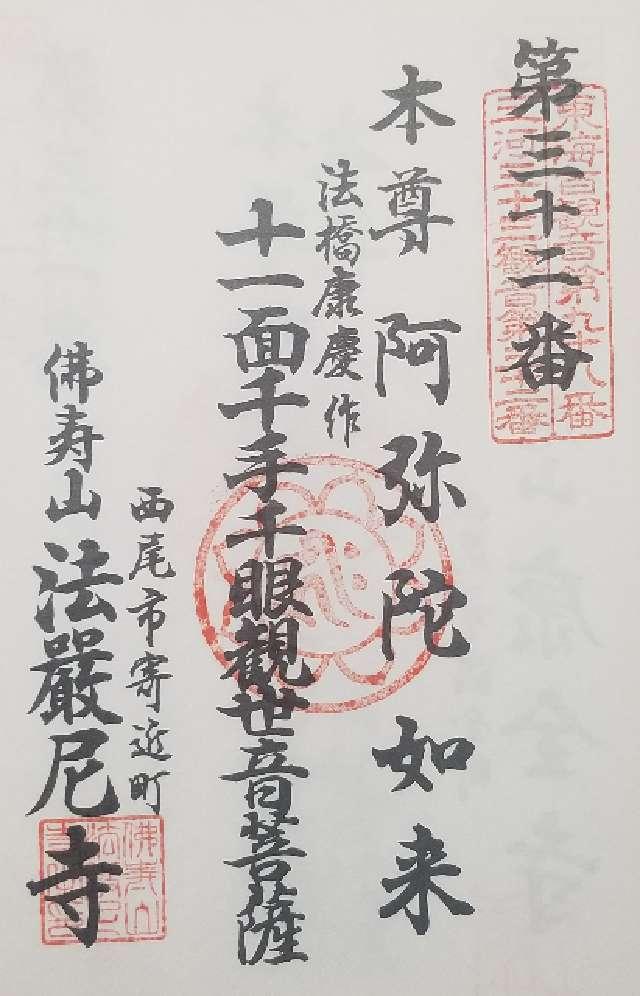 第三十二番
東海百観音第九十八番
三河三十三観音第三十二番
本尊 阿弥陀如来
法橋康慶作
十一面千手千眼観世音菩薩
西尾市寄近町
佛寿山法嚴尼寺